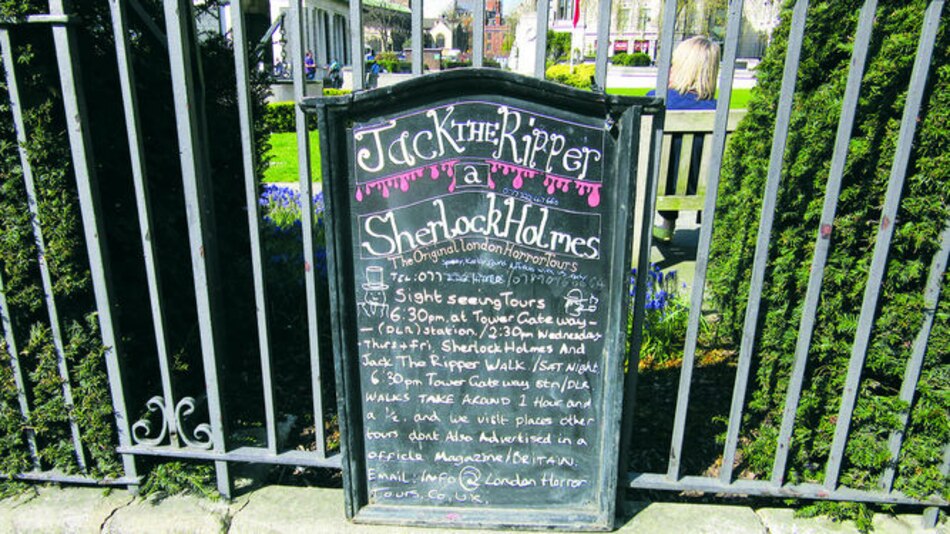 Jack THE Ripper
a
Sherlock Holmes
The Original London Horror Tours
TEL: 077
Sight seeing Tours
6:30pm. at Tower Gateway -
- (DLR) station. / 2:30pm Wednesday
- Thurs + fri, Sherlock Holmes And
Jack The Ripper WALK. / SAT Night
6:30pm Tower Gateway stn/DLR
WALKS TAKE AROUND 1 Hour and
a ½. and we visit places other
tours dont Also Advertised in a
officle Magazine/BRITAIN.
EMAIL: / INFO @ London Horror
Tours. Co. UK.